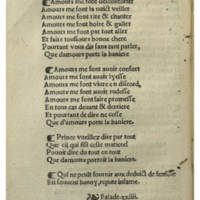 Amours me font desconforter
Amours me font la nuict veiller
Amours me font rire & chanter
Amours me font boire & galler
Amours me font par tout aller
Et faire tousiours bonne chere
Pourtant vous dis sans riens parler,
Que damours porte la baniere.
Amours me font auoir confort
Amours me font auoir lyesse
Amours me font viure en discord,
Amours me font auoir rudesse
Amours me font faire promesse
En tous cas deuant & derriere
Et pourtant de dire ne cesse
Que d'amours porte la baniere.
Prince vueillez dire par tout
Que cil qui fist ceste matiere
Pouoir dire du tout en tout
Que damours portoit la baniere.
Qui ne peult fournir aux deduictz de
En souuent hanny, repute infame.
Balade